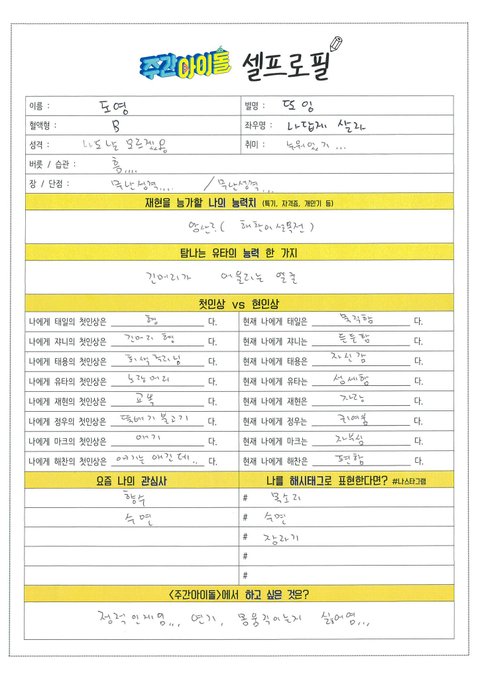 주간아이돌 셀프로필
이름 : 도영 별명 : 또잉
혈액형 : B 좌우명 : 나답게 살자
성격 : 나도 날 모르겠음 취미 : 누워있기...
버릇 / 습관 : 흠....
장 / 단점 : 무난성격.... / 무난성격...
재현을 능가할 나의 능력치 (특기, 자격증, 개인기 등)
암산?( 해찬이 상욱전 )
탐나는 유타의 능력 한 가지
긴머리가 어울리는 얼굴
첫인상 vs 현인상
나에게 태일의 첫인상은 형 다. 현재 나에게 태일은 묵직함 다.
나에게 쟈니의 첫인상은 긴머리 형 다. 현재 나에게 쟈니는 든든함 다.
나에게 태용의 첫인상은 회색 츄리닝 다. 현재 나에게 태용은 자신감 다.
나에게 유타의 첫인상은 노랑머리 다. 현재 나에게 유타는 섬세함 다.
나에게 재현의 첫인상은 교복 다. 현재 나에게 재현은 자랑 다.
나에게 정우의 첫인상은 뚝배기 불고기 다. 현재 나에게 정우는 귀여움 다.
나에게 마크의 첫인상은 애기 다. 현재 나에게 마크는 자부심 다.
나에게 해찬의 첫인상은 애기는 애긴데.. 다. 현재 나에게 해찬은 편함 다.
요즘 나의 관심사 나를 해시태그로 표현한다면? #나스타그램
향수 # 목소리
수면 # 수면
# 잠자기
#
#
<주간아이돌>에서 하고 싶은 것은?
정적인게임,,, 연기, 몸 움직이는지 싫어염,,,